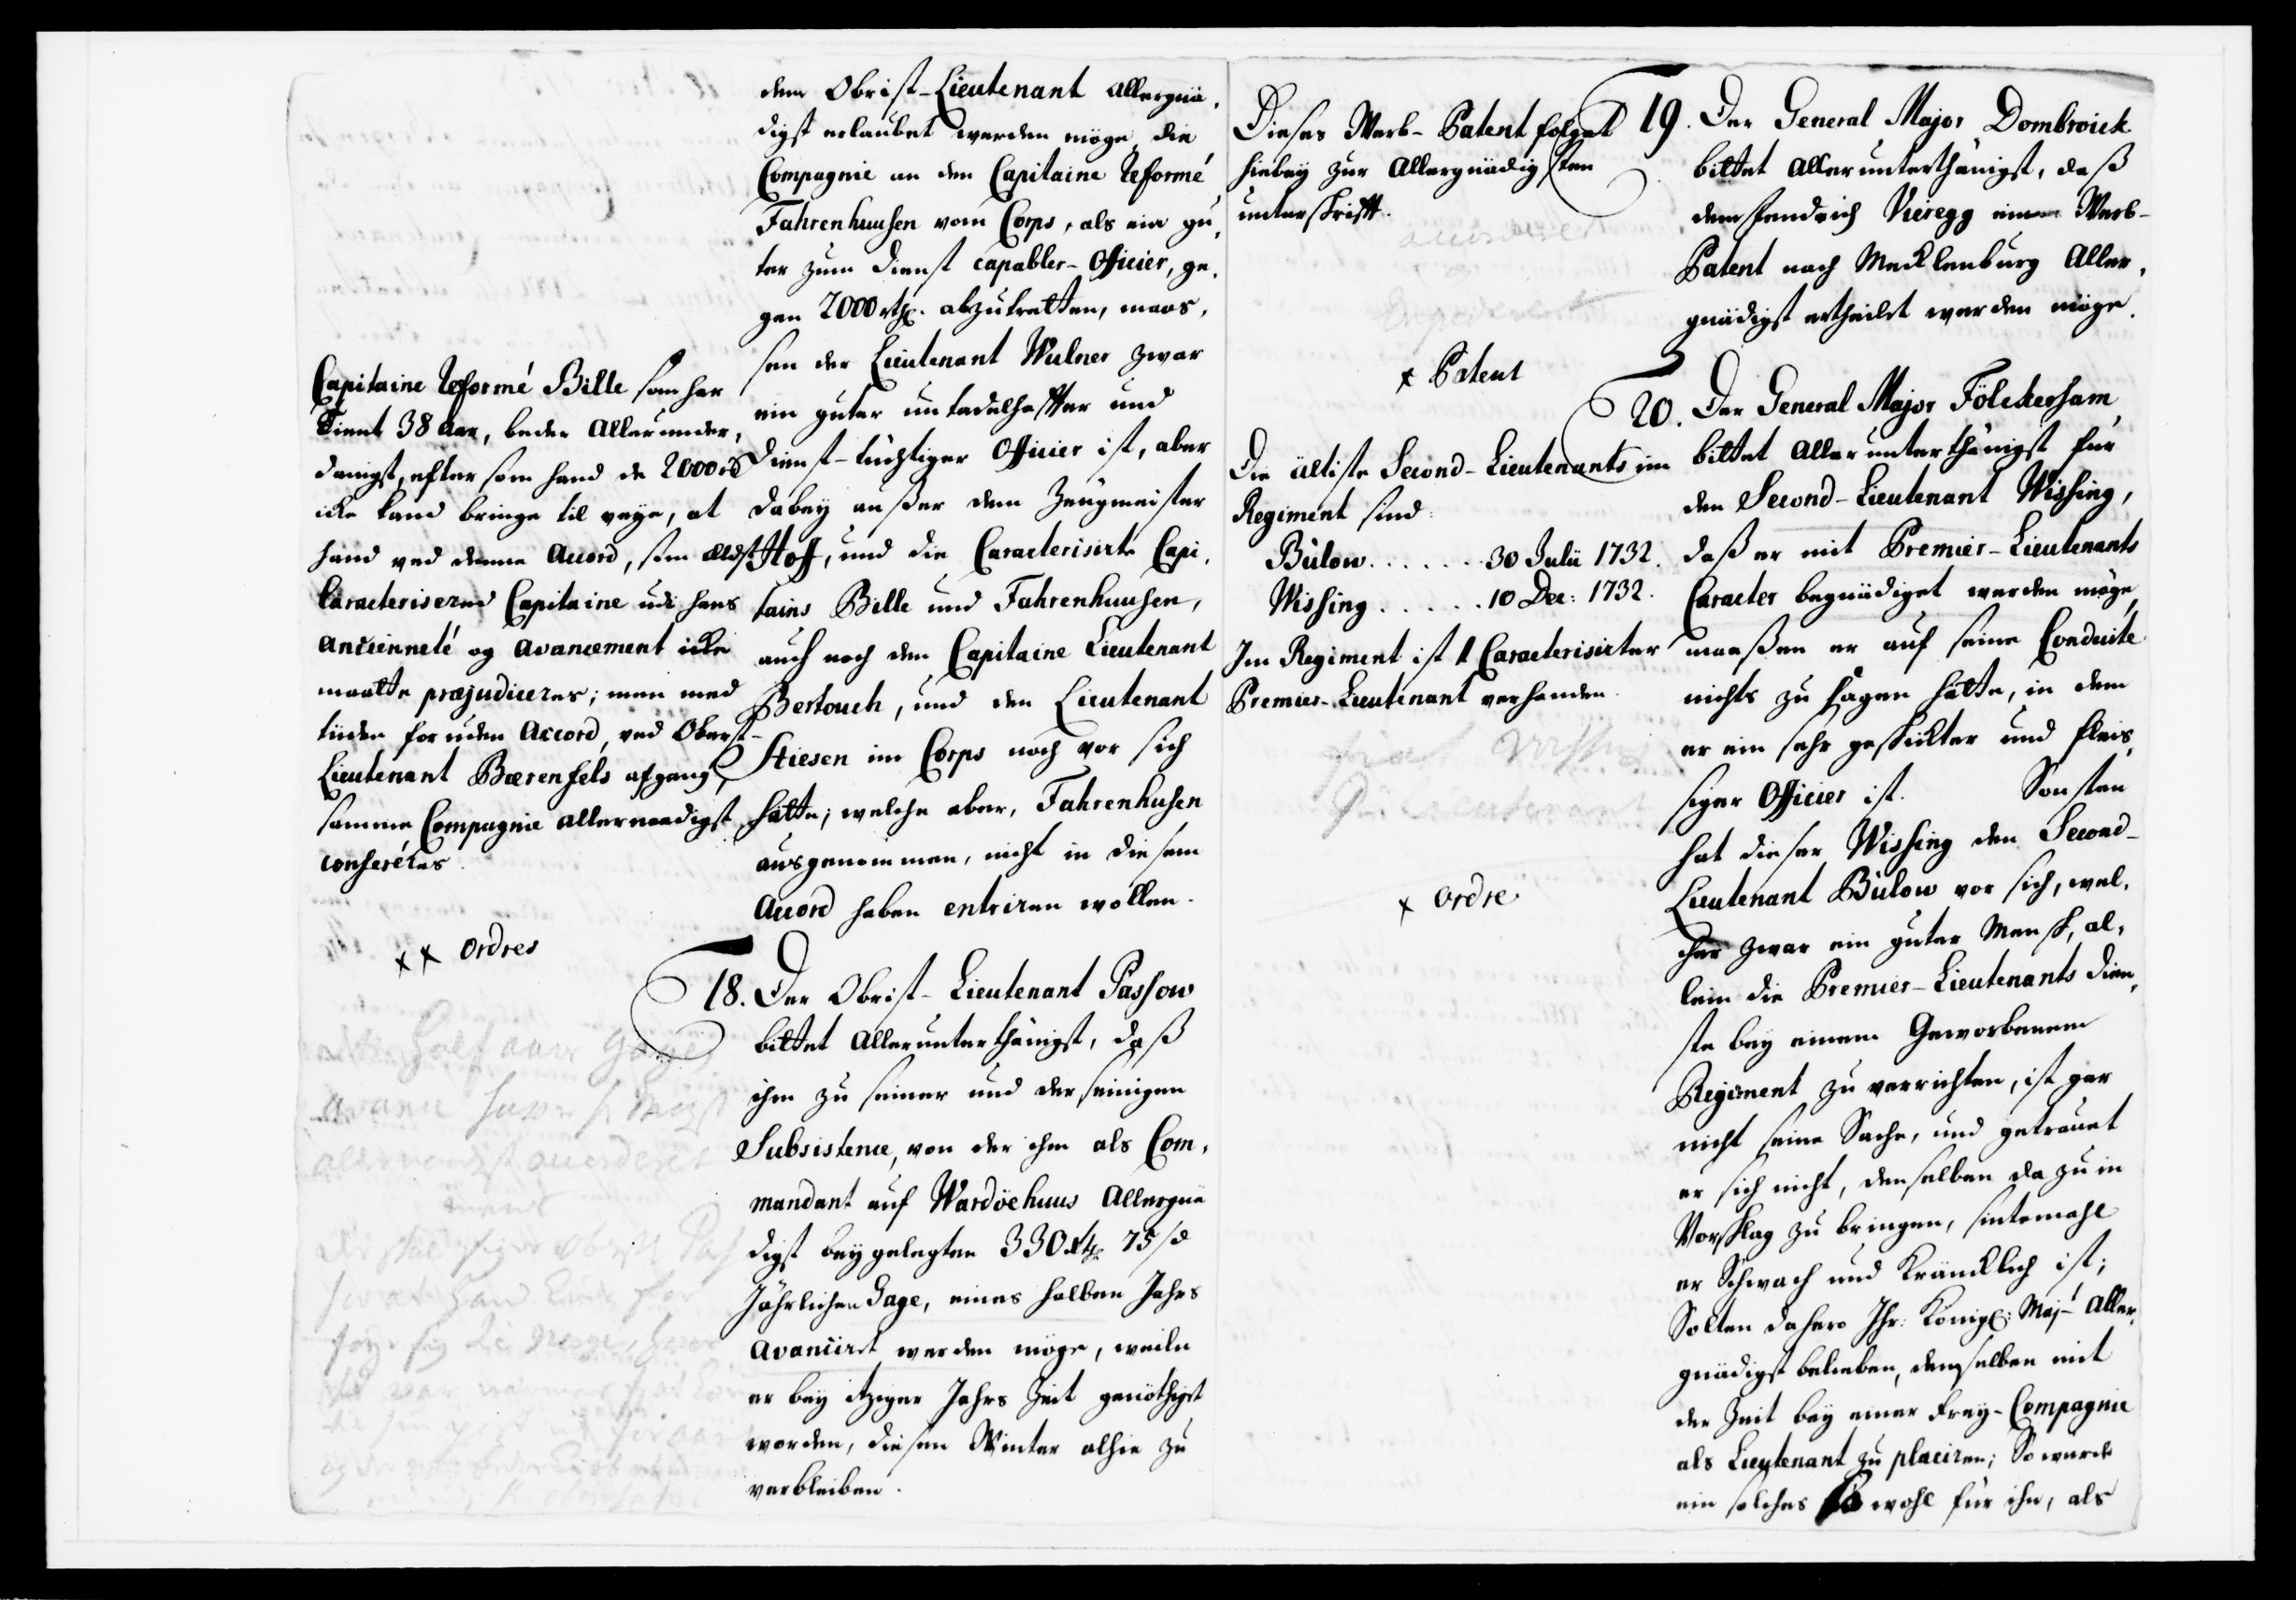 dem Obrist-Lieutenant Allergnä,
digst erlaubet werden möge, die
Compagnie an den Capitaine Reformé
Fahrenhuusen vom Corps, als ein gu,
ter zum Dienst capabler-Officier, ge,
gen 2000 rthl. abzutretten, maas,
sen der Lieutenant Wulner zwar
ein guter untadelhaffter und
Dienst-tüchtiger Officier ist, aber
dabey außer dem Zeugmeister
Hoff, und die Caracterisirte Capi,
tains Bille und Fahrenhuusen,
auch noch den Capitaine Lieutenant
Bertouch, und den Lieutenant
Stiesen im Corps noch vor sich
hätte; welche aber, Fahrenhusen
ausgenommen, nicht in diesem
Accord haben entriren wollen.
Capitaine Reformé Bille som har
tient 38 Aar, beder Allerunder,
danigst, efter som hand de 2000 rd
icke kand bringe til veye, at
hand ved denne Accord, som ældst
Caracteriserend Capitaine udi hans
Ancienneté og Avancement icke
maatte præjudiceres; men med
tiiden foruden Accord, ved Oberst-
Lieutenant Bærenfels afgang,
samme Compagnie allernaadigst
conferéres.
x x Ordres
18. Der Obrist-Lieutenant Passow
bittet Allerunterthänigst, daß
ihm zu seiner und der seinigen
Subsistence, von der ihm als Com,
mandant auf Wardöehuus Allergnä
digst beygelegten 330 rthl. 75 ß
Jährlichen Gage, eines halben Jahrs
Avanciret werden möge, weile
er bey itziger Jahrs Zeit genöthigt
worden, diesen Winter alhie zu
verbleiben.
Dieses Werb-Patent folget
hiebey zur Allergnädigsten
unterschrifft.
19. Der General Major Dombroick
bittet Allerunterthänigst, daß
dem Fendrich Vieregg einen Werb-
Patent nach Mecklenburg Aller,
gnädigst ertheilet werden möge.
x Patent
20. Der General Major Fölckersam
bittet Allerunterthänigst für
den Second-Lieutenant Wissing,
daß er mit Premier-Lieutenants
Caracter begnädiget werden möge,
maaßen er auf seine Conduite
nichts zu sagen hätte, in dem
er ein sehr geschickter und fleis,
siger Officier ist. Sonsten
hat dieser Wissing den Second-
Lieutenant Bülow vor sich, wel,
cher zwar ein guter Mensch, al,
lein die Premier-Lieutenants Dien,
ste bey einem Geworbenem
Regiment zu verrichten, ist gar
nicht seine Sache, und getrauet
er sich nicht, denselben dazu in
Vorschlag zu bringen, sintemahl
er Schwach und Kräncklich ist;
Solten dahero Ihr: Königl: Maj:t Aller,
gnädigst belieben, demselben mit
der Zeit bey einer Frey-Compagnie
als Lieutenant zu placiren; So würde
ein solches so wohl für ihn, als
Die ältiste Second-Lieutenants im
Regiment sind:
Bülow......30 Julii 1732.
Wissing.....10 Dec: 1732.
Im Regiment ist 1 Caracterisirter
Premier-Lieutenant verhanden.
x Ordre